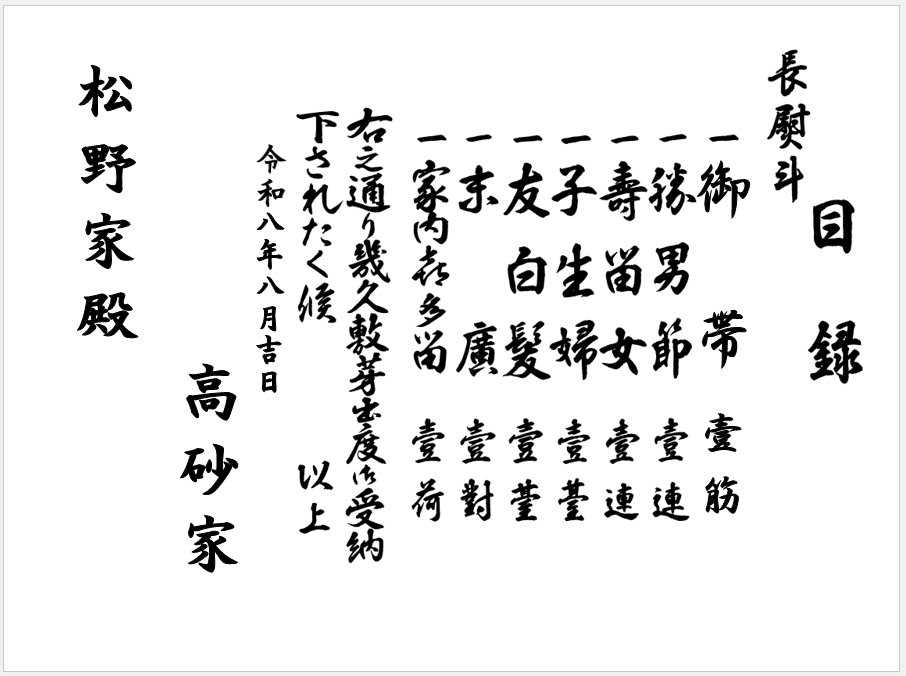 目録
長熨斗
一御帯壹筋
一勝男節壹連
一壽留女壹連
一子生婦壹䑓
一友白髪壹䑓
一末廣壹對
一家内㐂多留壹荷
右之通り幾久敷芽出度御受納
下されたく候 以上
令和八年八月吉日
高砂家
松野家殿